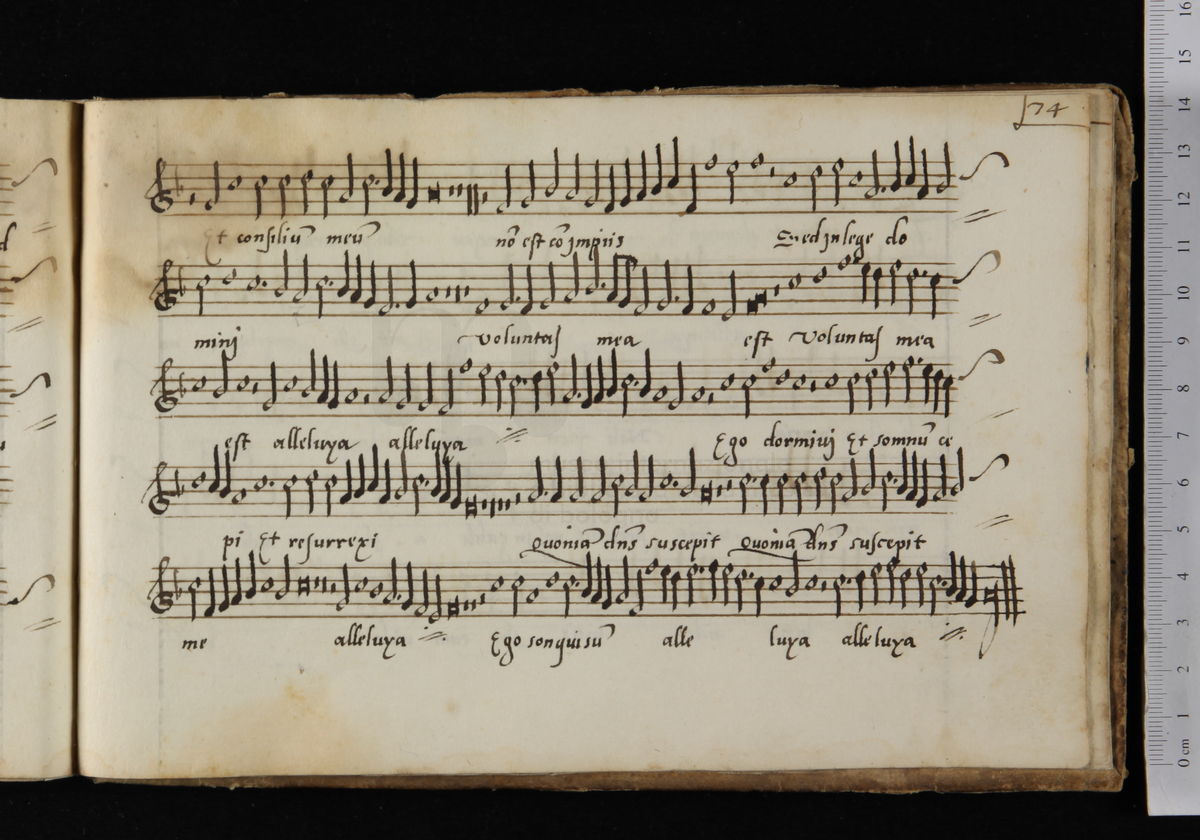 174
Et consiliū meū nō est cō impiis Sed in lege do
minj voluntas mea est voluntas mea
est alleluya alleluya
Ego dormiuj Et somnū ce
pi Et resurrexi quoniā dns suscepit quoniā dns suscepit
me alleluya Ego son qui sū alle luya alleluya
16
15
14
13
12
11
10
9
8
7
6
5
4
3
2
1
0 cm